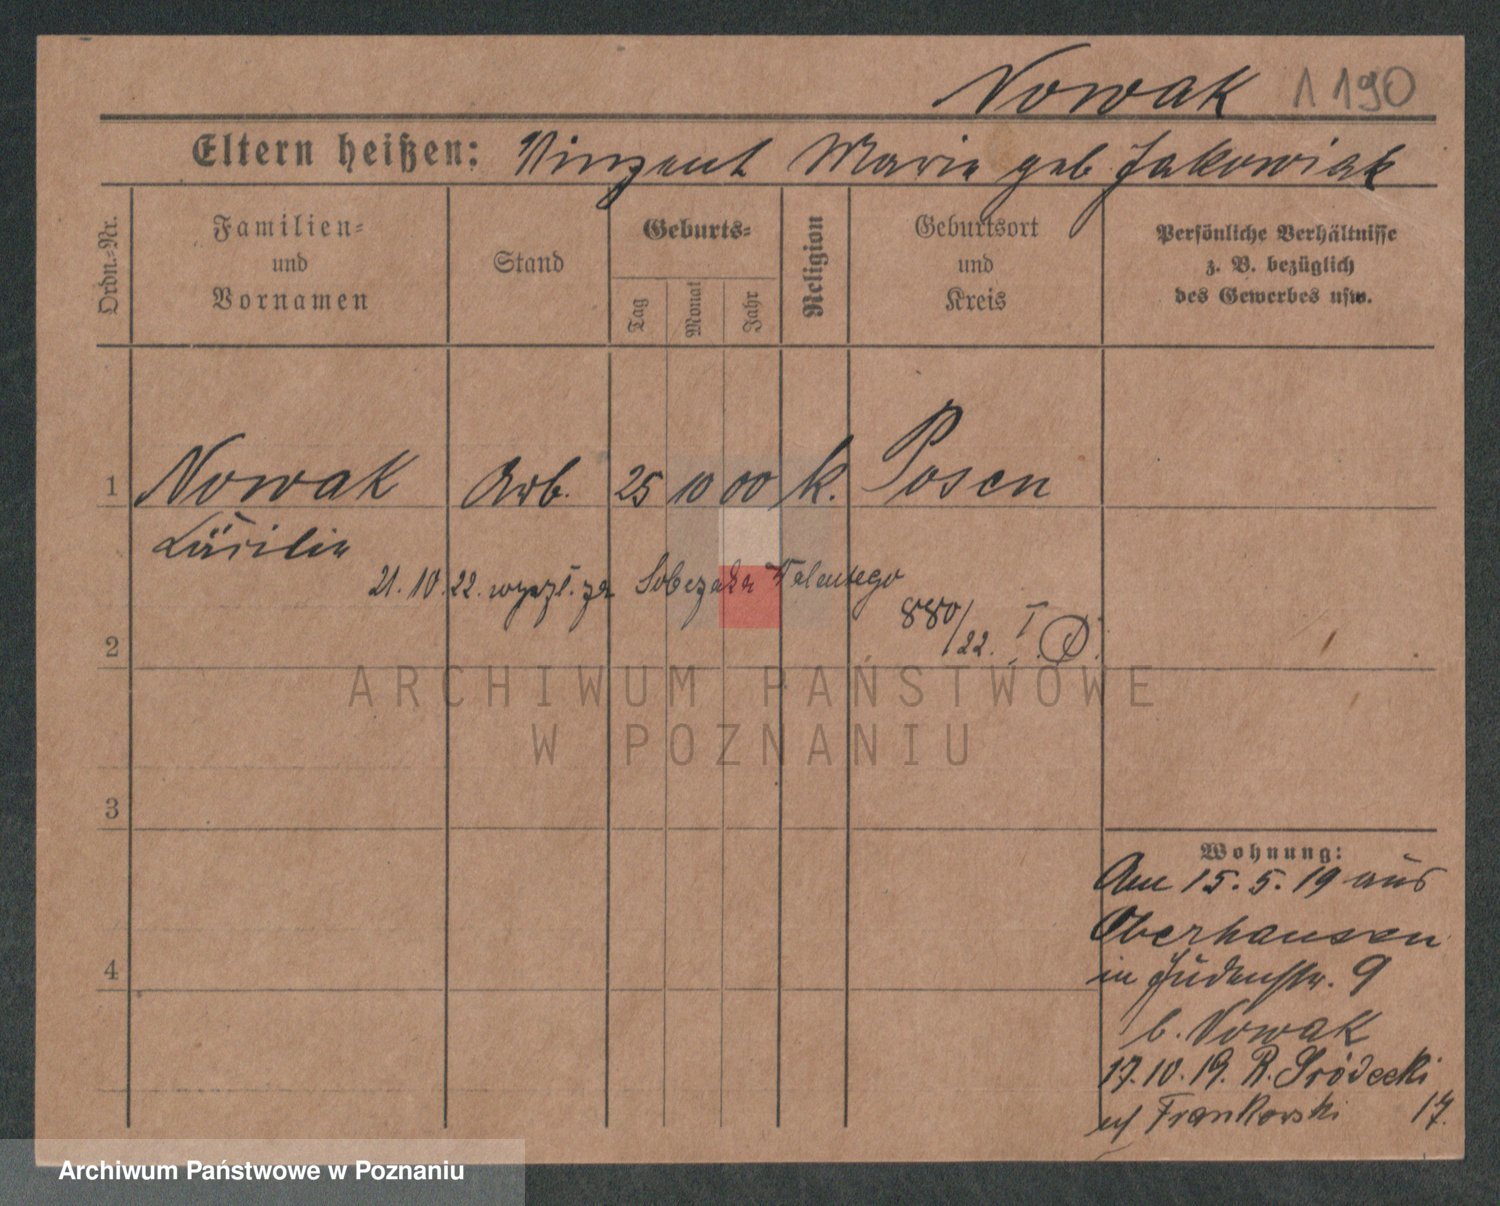 Nowak 1190
Eltern heißen: Vinzent Marie geb. Jakowiak
Ordn.-Nr.
Familien-
und
Vornamen
Stand
Geburts-
Tag
Monat
Jahr
Religion
Geburtsort
und
Kreis
Persönliche Verhältnisse
z. B. bezüglich
des Gewerbes usw.
1 Nowak Arb. 25 10 00 k. Posen
Cäcilie
21.10.22. wyszł. za Sobczaka Walentego
880/22. I
2
ARCHIWUM PAŃSTWOWE
W POZNANIU
3
Wohnung:
Am 15.5.19 aus
Oberhausen
4
in Judenstr. 9
b. Nowak
17.10.19. R. Sródecki
17.
Archiwum Państwowe w Poznaniu